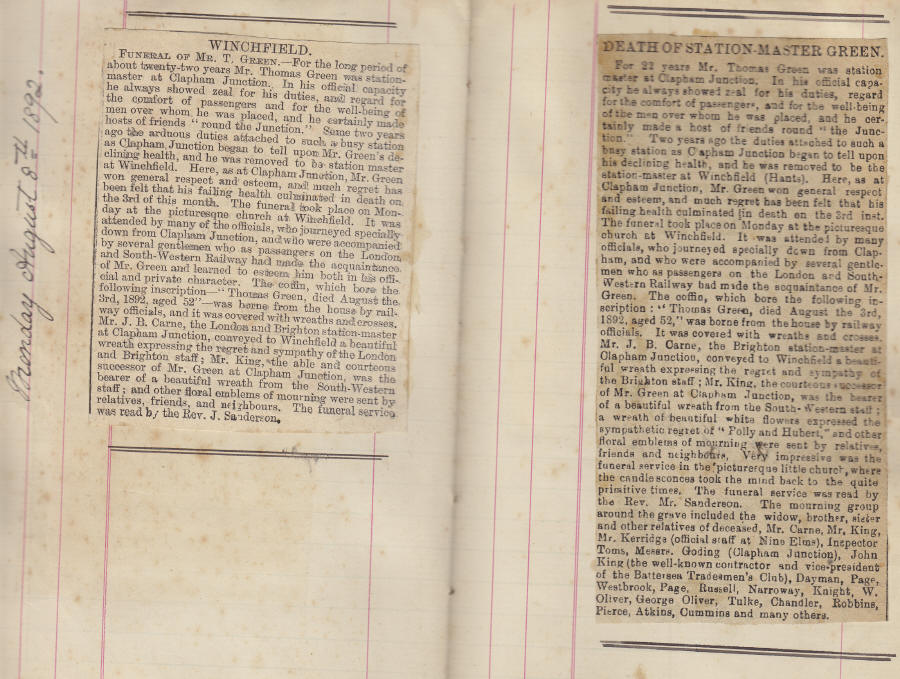 Monday August 8th 1892.
WINCHFIELD.
FUNERAL OF MR. T. GREEN.—For the long period of
about twenty-two years Mr. Thomas Green was station-
master at Clapham Junction. In his official capacity
he always showed zeal for his duties, and regard for
the comfort of passengers and for the well-being of
men over whom he was placed, and he certainly made
hosts of friends "round the Junction." Some two years
ago the arduous duties attached to such a busy station
as Clapham Junction began to tell upon Mr. Green's de-
clining health, and he was removed to be station master
at Winchfield. Here, as at Clapham Junction, Mr. Green
won general respect and esteem, and much regret has
been felt that his failing health culminated in death on
the 3rd of this month. The funeral took place on Mon-
day at the picturesque church at Winchfield. It was
attended by many of the officials, who journeyed specially
down from Clapham Junction, and who were accompanied
by several gentlemen who as passengers on the London
and South-Western Railway had made the acquaintance
of Mr. Green and learned to esteem him both in his offi-
cial and private character. The coffin, which bore the
following inscription—"Thomas Green, died August the
3rd, 1892, aged 52"—was borne from the house by rail-
way officials, and it was covered with wreaths and crosses.
Mr. J. B. Carne, the London and Brighton station-master
at Clapham Junction, conveyed to Winchfield a beautiful
wreath expressing the regret and sympathy of the London
and Brighton staff; Mr. King, the able and courteous
successor of Mr. Green at Clapham Junction, was the
bearer of a beautiful wreath from the South-Western
staff; and other floral emblems of mourning were sent by
relatives, friends, and neighbours. The funeral service
was read by the Rev. J. Sanderson.
DEATH OF STATION-MASTER GREEN.
For 22 years Mr. Thomas Green was station
master at Clapham Junction. In his official capa-
city he always showed zeal for his duties, regard
for the comfort of passengers, and for the well-being
of the men over whom he was placed, and he cer-
tainly made a host of friends round "the Junc-
tion." Two years ago the duties attached to such a
busy station as Clapham Junction began to tell upon
his declining health, and he was removed to be the
station-master at Winchfield (Hants). Here, as at
Clapham Junction, Mr. Green won general respect
and esteem, and much regret has been felt that his
failing health culminated in death on the 3rd inst.
The funeral took place on Monday at the picturesque
church at Winchfield. It was attended by many
officials, who journeyed specially down from Clap-
ham, and who were accompanied by several gentle-
men who as passengers on the London and South-
Western Railway had made the acquaintance of Mr.
Green. The coffin, which bore the following in-
scription: "Thomas Green, died August the 3rd,
1892, aged 52," was borne from the house by railway
officials. It was covered with wreaths and crosses.
Mr. J. B. Carne, the Brighton station-master at
Clapham Junction, conveyed to Winchfield a beauti-
ful wreath expressing the regret and sympathy of
the Brighton staff; Mr. King, the courteous successor
of Mr. Green at Clapham Junction, was the bearer
of a beautiful wreath from the South-Western staff;
a wreath of beautiful white flowers expressed the
sympathetic regret of "Polly and Hubert," and other
floral emblems of mourning were sent by relatives,
friends and neighbours. Very impressive was the
funeral service in the picturesque little church, where
the candle sconces took the mind back to the quite
primitive times. The funeral service was read by
the Rev. Mr. Sanderson. The mourning group
around the grave included the widow, brother, sister
and other relatives of deceased, Mr. Carne, Mr. King,
Mr. Kerridge (official staff at Nine Elms), Inspector
Toms, Messrs. Goding (Clapham Junction), John
King (the well-known contractor and vice-president
of the Battersea Tradesmen's Club), Dayman, Page,
Westbrook, Page, Russell, Narroway, Knight, W.
Oliver, George Oliver, Tulke, Chandler, Robbins,
Pierce, Atkins, Cummins and many others.